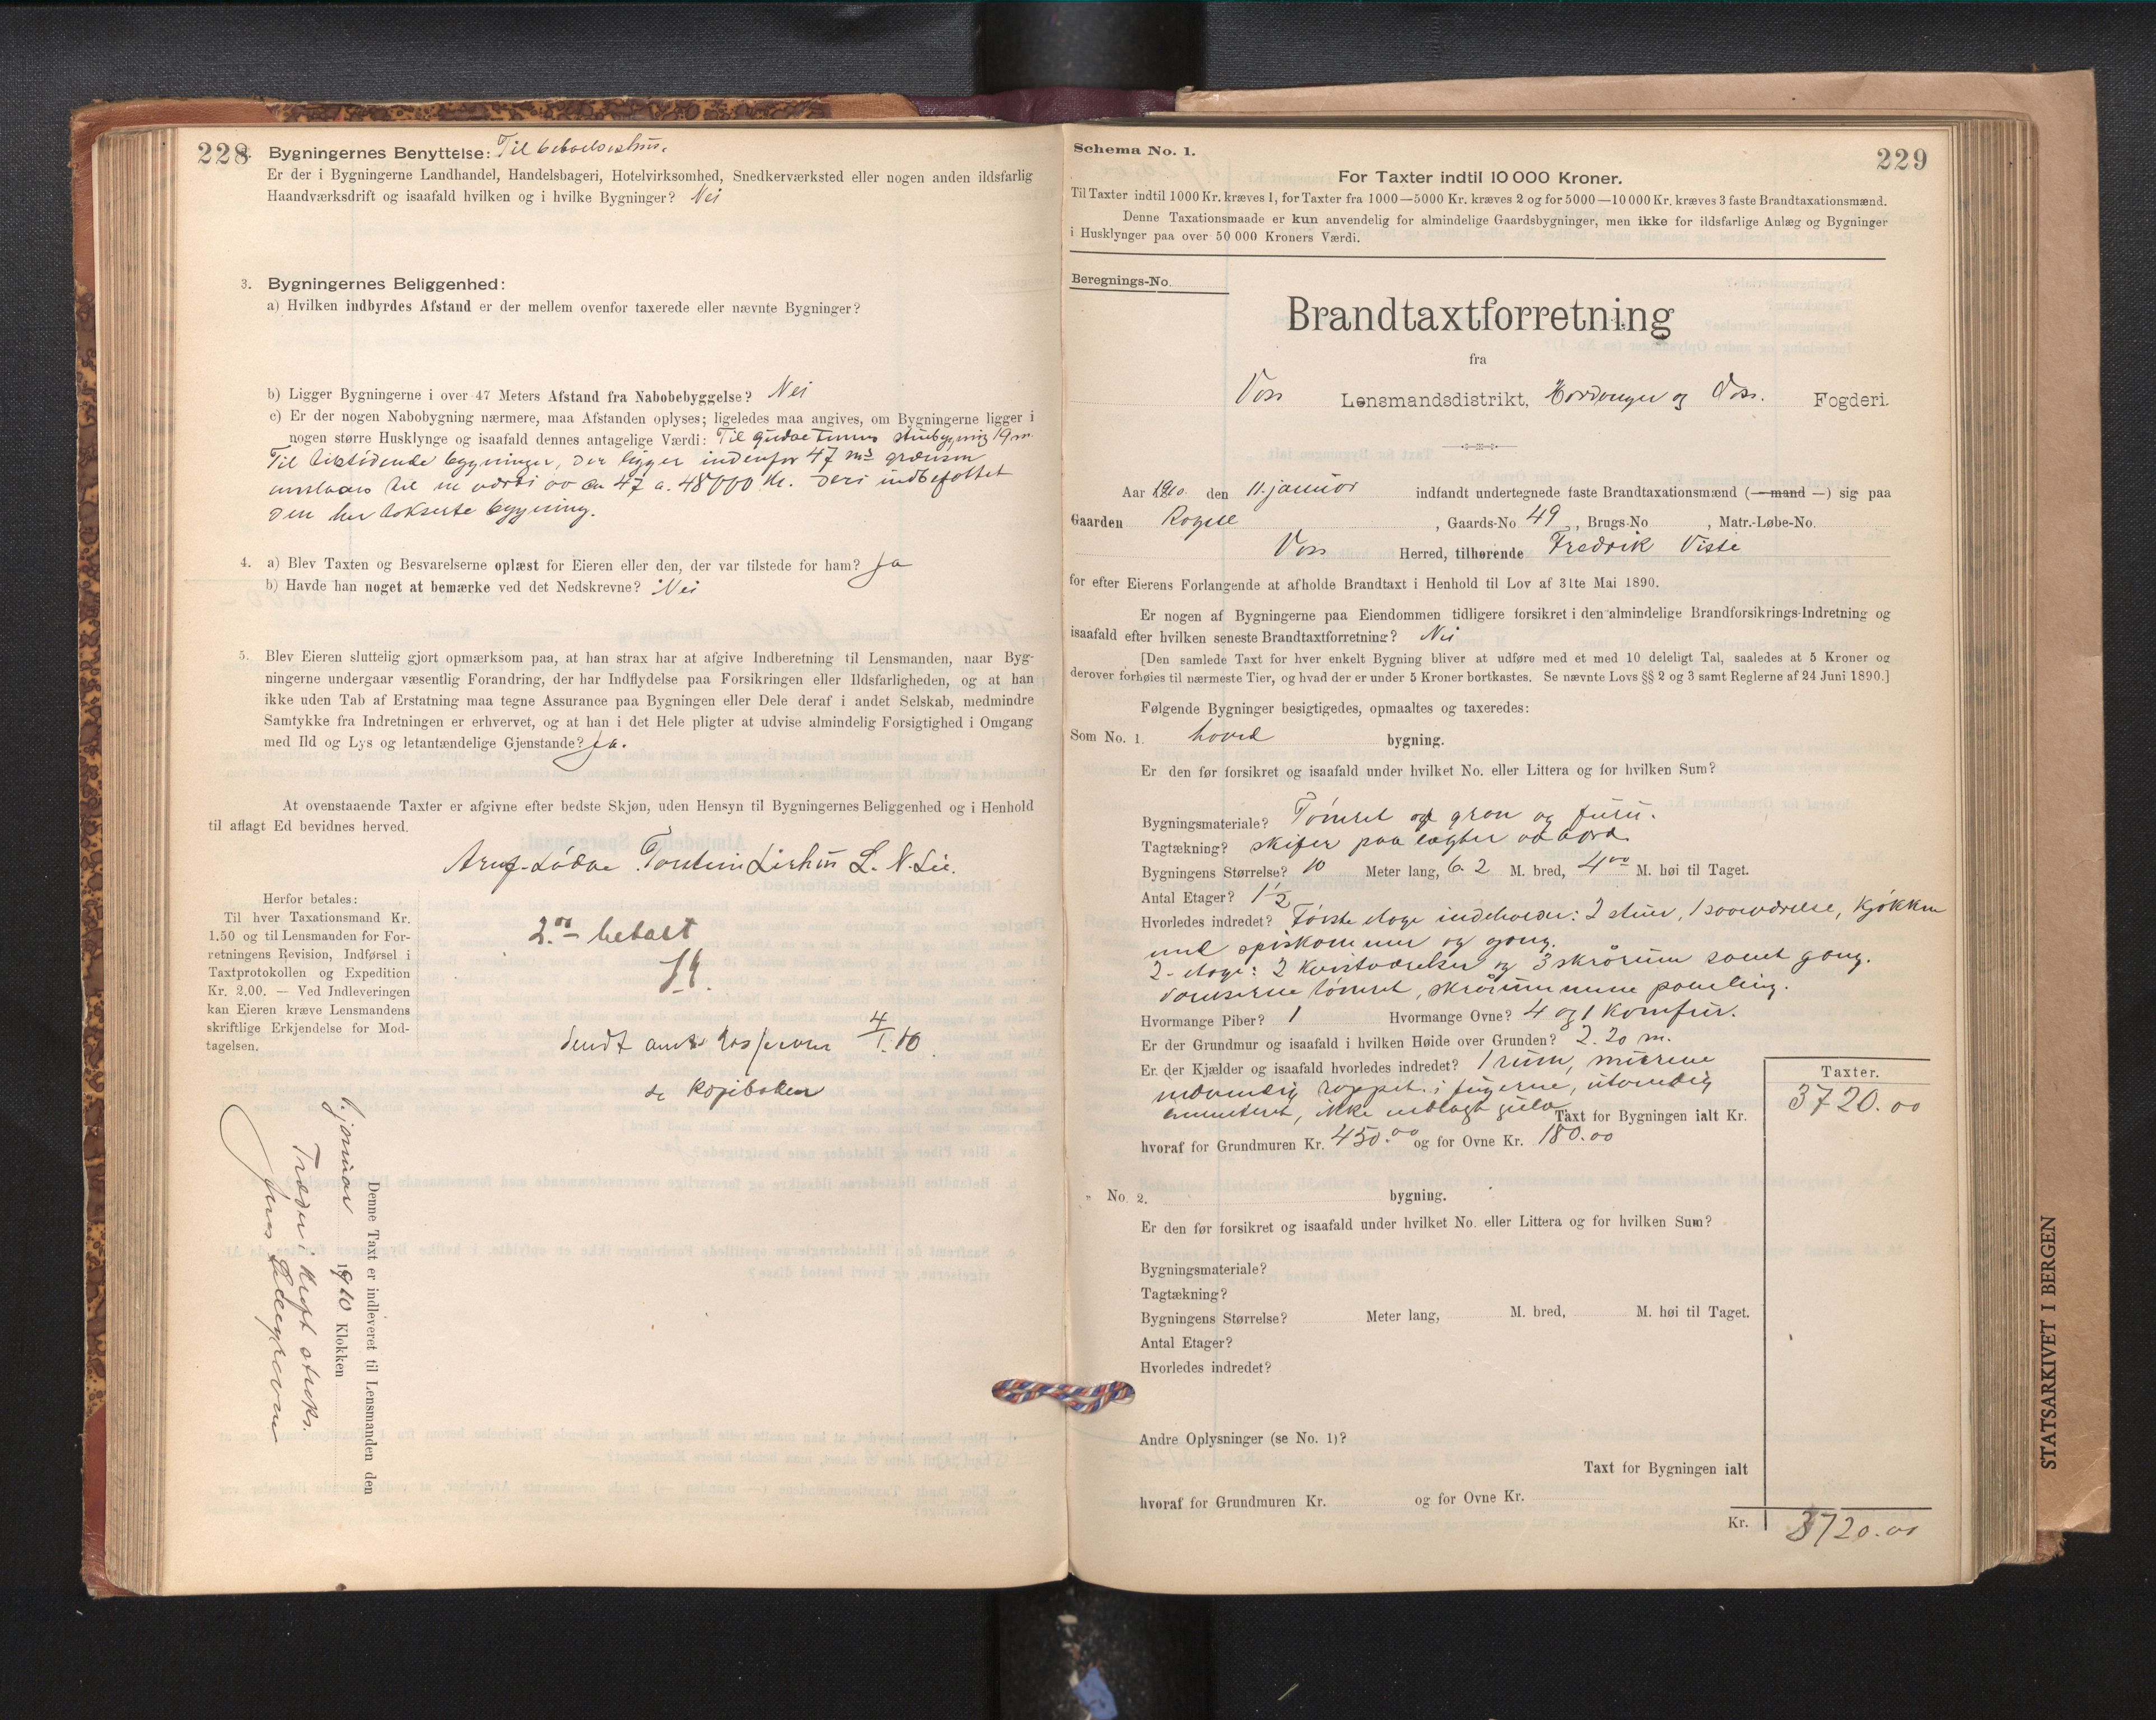 228
Bygningernes Benyttelse: Til beboelseshus.
Er der i Bygningerne Landhandel, Handelsbageri, Hotelvirksomhed, Snedkerværksted eller nogen anden ildsfarlig
Haandværksdrift og isaafald hvilken og i hvilke Bygninger? Nei
3. Bygningernes Beliggenhed:
a) Hvilken indbyrdes Afstand er der mellem ovenfor taxerede eller nævnte Bygninger?
b) Ligger Bygningerne i over 47 Meters Afstand fra Nabobebyggelse? Nei
c) Er der nogen Nabobygning nærmere, maa Afstanden oplyses; ligeledes maa angives, om Bygningerne ligger i
nogen større Husklynge og isaafald dennes antagelige Værdi: Til stuebygning 19 m.
Til bygninger, der ligger indenfor 47 ms grænsen
anslaaes til en værdi av ca 47 a. 48000 Kr. Deri indbefattet
den her takserte bygning.
4. a) Blev Taxten og Besvarelserne oplæst for Eieren eller den, der var tilstede for ham? Ja
b) Havde han noget at bemærke ved det Nedskrevne? Nei
5. Blev Eieren sluttelig gjort opmærksom paa, at han strax har at afgive Indberetning til Lensmanden, naar Byg-
ningerne undergaar væsentlig Forandring, der har Indflydelse paa Forsikringen eller Ildsfarligheden, og at han
ikke uden Tab af Erstatning maa tegne Assurance paa Bygningen eller Dele deraf i andet Selskab, medmindre
Samtykke fra Indretningen er erhvervet, og at han i det Hele pligter at udvise almindelig Forsigtighed i Omgang
med Ild og Lys og letantændelige Gjenstande? Ja.
At ovenstaaende Taxter er afgivne efter bedste Skjøn, uden Hensyn til Bygningernes Beliggenhed og i Henhold
til aflagt Ed bevidnes herved.
Torstein Lirhus L. N. Lie.
Herfor betales:
Til hver Taxationsmand Kr.
1.50 og til Lensmanden for For-
retningens Revision, Indførsel i
Taxtprotokollen og Expedition
Kr. 2.00. — Ved Indleveringen
kan Eieren kræve Lensmandens
skriftlige Erkjendelse for Mod-
tagelsen.
2.00 betalt
Sendt 4/1.10
se kopiboken
Denne Taxt er indleveret til Lensmanden den
januar 1910 Klokken
Træder i kraft straks.
Schema No. 1.
229
For Taxter indtil 10 000 Kroner.
Til Taxter indtil 1000 Kr. kræves 1, for Taxter fra 1000—5000 Kr. kræves 2 og for 5000—10 000 Kr. kræves 3 faste Brandtaxationsmænd.
Denne Taxationsmaade er kun anvendelig for almindelige Gaardsbygninger, men ikke for ildsfarlige Anlæg og Bygninger
i Husklynger paa over 50 000 Kroners Værdi.
Beregnings-No.
Brandtaxtforretning
fra
Voss Lensmandsdistrikt, Hardanger og Voss. Fogderi.
Aar 1910. den 11. januar indfandt undertegnede faste Brandtaxationsmænd (— mand —) sig paa
Gaarden Rogne, Gaards-No 49, Brugs-No , Matr.-Løbe-No.
Voss Herred, tilhørende Fredrik Viste
for efter Eierens Forlangende at afholde Brandtaxt i Henhold til Lov af 31te Mai 1890.
Er nogen af Bygningerne paa Eiendommen tidligere forsikret i den almindelige Brandforsikrings-Indretning og
isaafald efter hvilken seneste Brandtaxtforretning? Nei
[Den samlede Taxt for hver enkelt Bygning bliver at udføre med et med 10 deleligt Tal, saaledes at 5 Kroner og
derover forhøies til nærmeste Tier, og hvad der er under 5 Kroner bortkastes. Se nævnte Lovs §§ 2 og 3 samt Reglerne af 24 Juni 1890.]
Følgende Bygninger besigtigedes, opmaaltes og taxeredes:
Som No. 1. hoved bygning.
Er den før forsikret og isaafald under hvilket No. eller Littera og for hvilken Sum?
Bygningsmateriale? Tømret af gran og furu.
Tagtækning? skifer paa lægter og bord.
Bygningens Størrelse? 10 Meter lang, 6.2 M. bred, 4.00 M. høi til Taget.
Antal Etager? 1 1/2
Hvorledes indredet? Første etage indeholder: 2 stuer, 1 soveværelse, kjøkken
med spiskammer og gang.
2. etage: 2 kvistværelser og 3 skrårum samt gang.
tømret, skrårummene paneling.
Hvormange Piber? 1 Hvormange Ovne? 4 og 1 komfur.
Er der Grundmur og isaafald i hvilken Høide over Grunden? 2.20 m.
Er der Kjælder og isaafald hvorledes indredet? 1 rum, murene
indvendig rappet i fugerne, utvendig
cementeret, ikke indlagt gulv
Taxt for Bygningen ialt Kr.
Taxter.
3720.00
hvoraf for Grundmuren Kr. 450.00 og for Ovne Kr. 180.00
" No. 2. bygning.
Er den før forsikret og isaafald under hvilket No. eller Littera og for hvilken Sum?
Bygningsmateriale?
Tagtækning?
Bygningens Størrelse? Meter lang, M. bred, M. høi til Taget.
Antal Etager?
Hvorledes indredet?
Andre Oplysninger (se No. 1)?
Taxt for Bygningen ialt
hvoraf for Grundmuren Kr. og for Ovne Kr.
Kr. 3720.00
STATSARKIVET I BERGEN